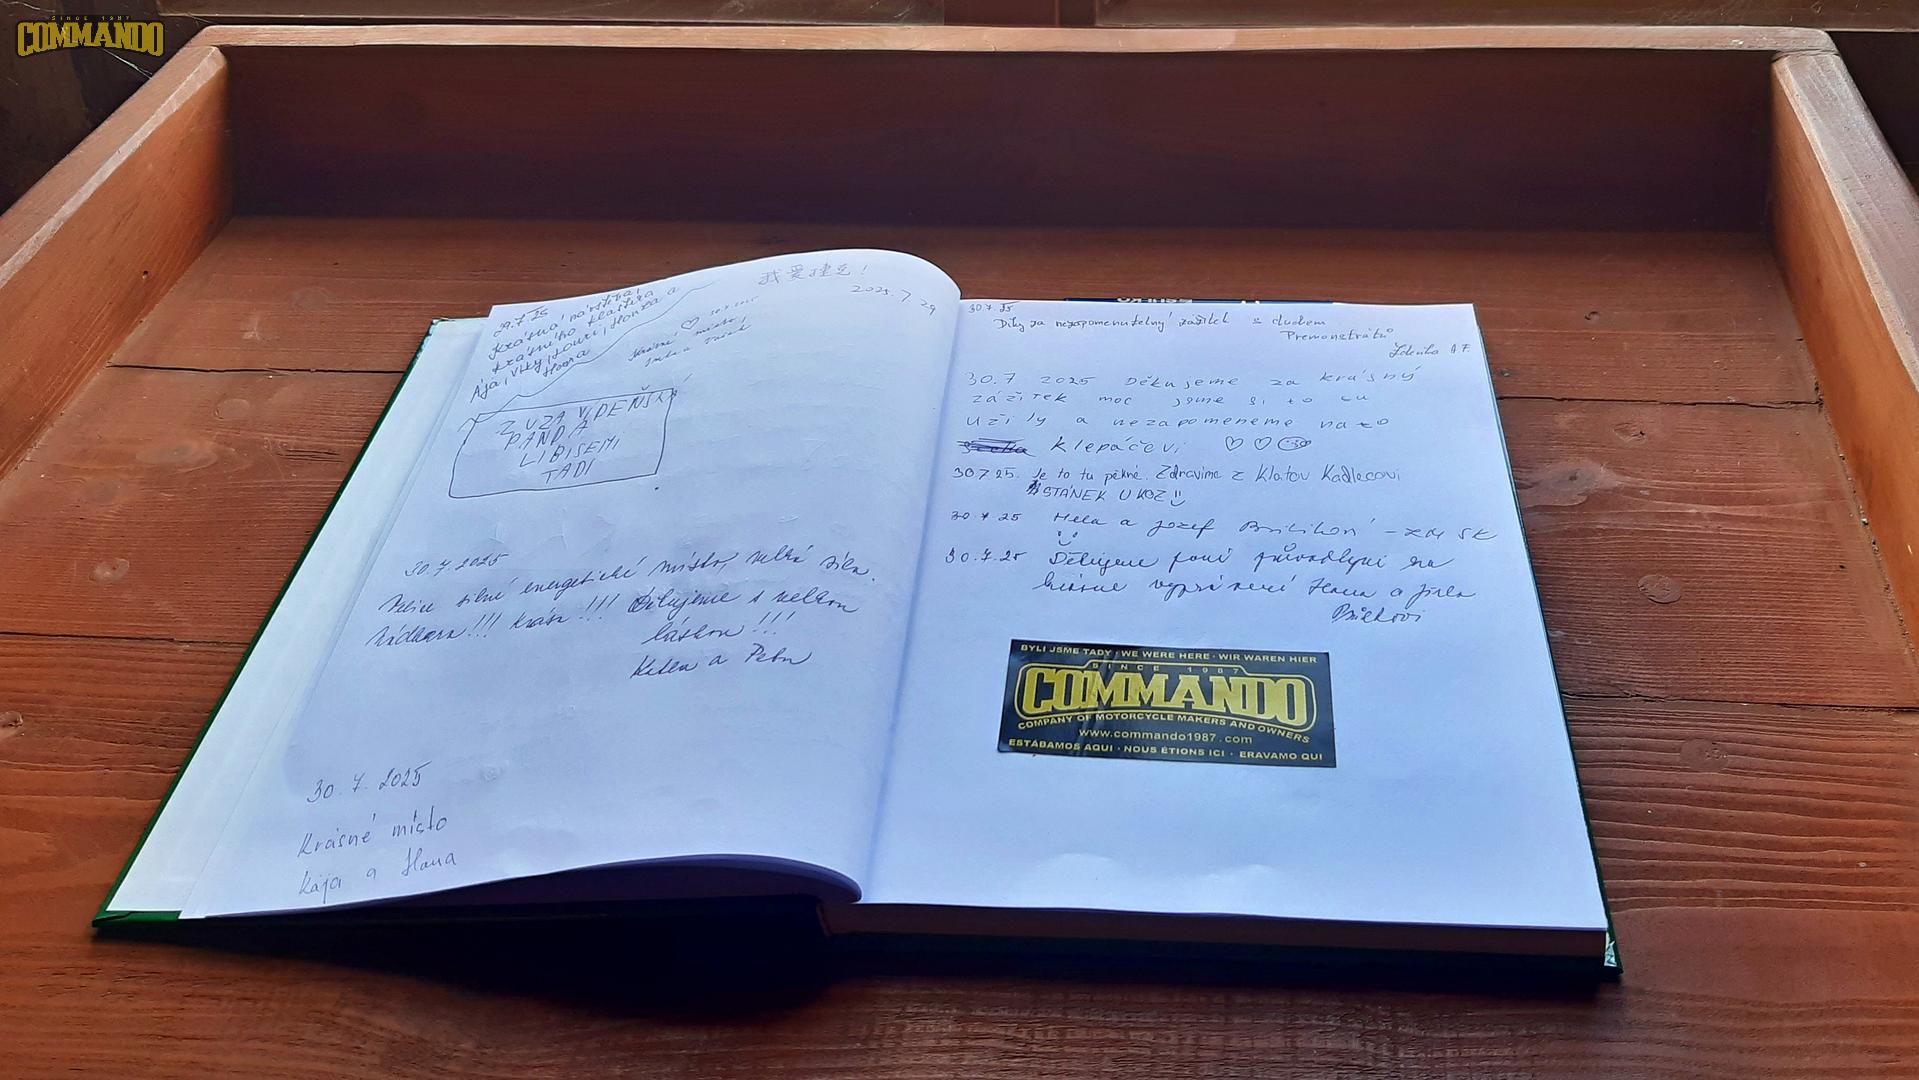 SINCE 1987
COMMANDO
29.7.25
Krásná návštěva
krásného kláštera
a
我爱捷克!
2025.7.29
Krásné ♡
místo!
ZUZA VÍDEŇSKÁ
PANDA
LIBISEMI
TADI
30.7.2025
Velice silné energetické místo, velká síla.
Nádhera!!! Krása!!! Děkujeme s velkou
láskou!!!
a Petr
30.7.2025
Krásné místo
Kája a Hana
30.7.25
Díky za nezapomenutelný zážitek s duchem
Premonstrátů
Zdeňka A.F.
30.7 2025 Děkujeme za krásný
zážitek moc jsme si to tu
užily a nezapomeneme na to
Klepáčovi ♡ ♡
30.7.25. Je to tu pěkné. Zdravíme z Klatov Kadlecovi
STÁNEK U KOZ
30.7.25 Hela a Jozef - SK
30.7.25 Děkujeme paní průvodkyni za
krásné vyprávění Hana a Jirka
BYLI JSME TADY · WE WERE HERE · WIR WAREN HIER
SINCE 1987
COMMANDO
COMPANY OF MOTORCYCLE MAKERS AND OWNERS
www.commando1987.com
ESTÁBAMOS AQUI · NOUS ÉTIONS ICI · ERAVAMO QUI